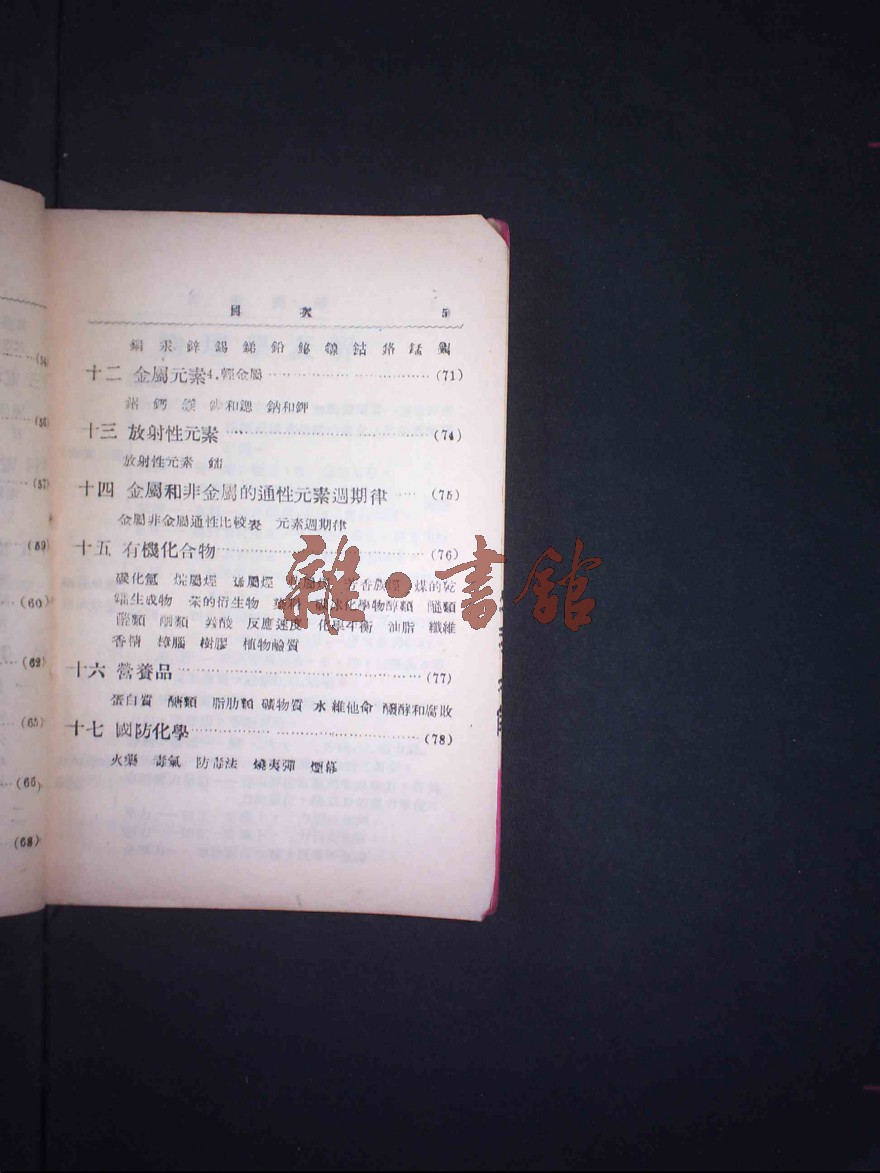 目 次 5
銅 汞 鋅 錫 銻 鉛 鉍 鎳 鈷 鉻 錳
十二 金屬元素4.輕金屬 (71)
鈣 和鍶 鈉和鉀
十三 放射性元素 (74)
放射性元素 鐳
十四 金屬和非金屬的通性元素週期律 (75)
金屬非金屬通性比較表 元素週期律
十五 有機化合物 (76)
碳化氫 烷屬烴 芳香屬烴 煤的乾
餾生成物 苯的衍生物 碳水化學物醇類 醚類
醛類 酮類 羧酸 反應速度 化學平衡 油脂 纖維
香精 樟腦 樹膠 植物鹼質
十六 營養品 (77)
蛋白質 醣類 脂肪類 礦物質 水 維他命 醱酵和腐敗
十七 國防化學 (78)
火藥 毒氣 防毒法 燒夷彈 煙幕
(56)
(57)
(59)
(60)
(62)
(65)
(66)
(68)
雜·書館